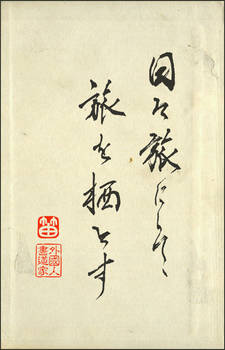 日々旅にして
旅を栖とす
笛
外國人
書道家